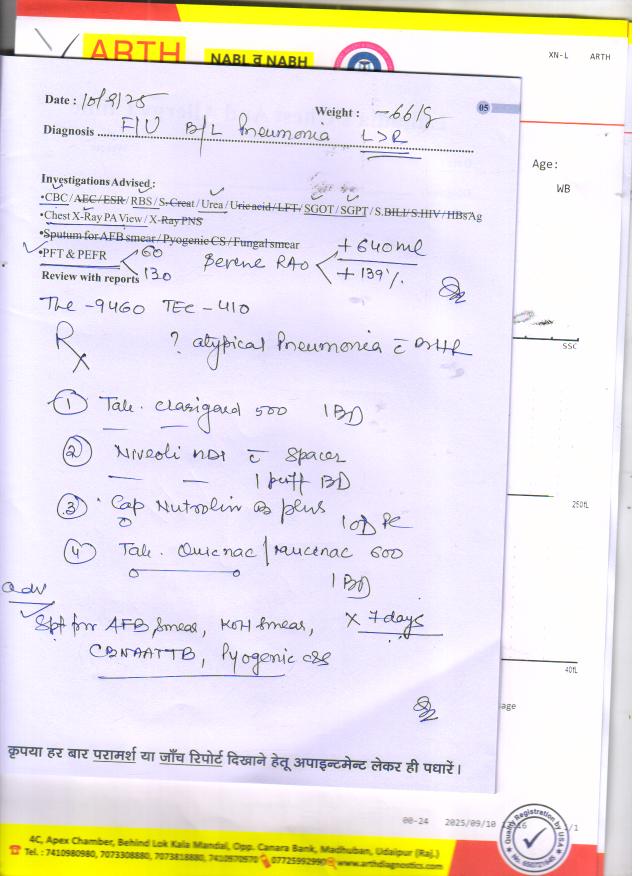 ARTH
NABL व NABH
XN-L ARTH
05
Date : 10/9/25
Weight : - 66 kg
Diagnosis F/U B/L Pneumonia L>R
Age:
WB
Investigations Advised :
•CBC / AEC / ESR / RBS / S. Creat / Urea / Uric acid / LFT / SGOT / SGPT / S.BILI / S.HIV / HBsAg
•Chest X-Ray PA View / X-Ray PNS
•Sputum for AFB smear / Pyogenic CS / Fungal smear
•PFT & PEFR 60 130
Severe RAO + 640 ml + 139 %
Review with reports
The - 9460 TEC - 410
Rx ? atypical Pneumonia c̄ BHR
SSC
① Tab. Clarigard 500 1 BD
② Niveoli MDI c̄ Spacer
1 puff BD
250fL
③ Cap Nutrolin plus
1 OD PC
④ Tab. Quicnac / Mucenac 600
1 BD
Adv
Spt for AFB Smear, KOH Smear, x 7 days
CBNAAT TB, Pyogenic c/s
40fL
age
कृपया हर बार परामर्श या जाँच रिपोर्ट दिखाने हेतू अपाइन्टमेन्ट लेकर ही पधारें।
00-24 2025/09/10 16 1/1
4C, Apex Chamber, Behind Lok Kala Mandal, Opp. Canara Bank, Madhuban, Udaipur (Raj.)
Tel. : 7410980980, 7073308880, 7073818880, 7410970970 07725992990 www.arthdiagnostics.com
Quality Registration by USA